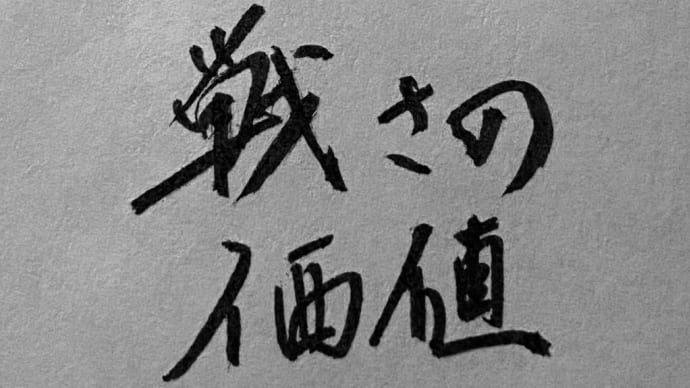 戦さの
価値